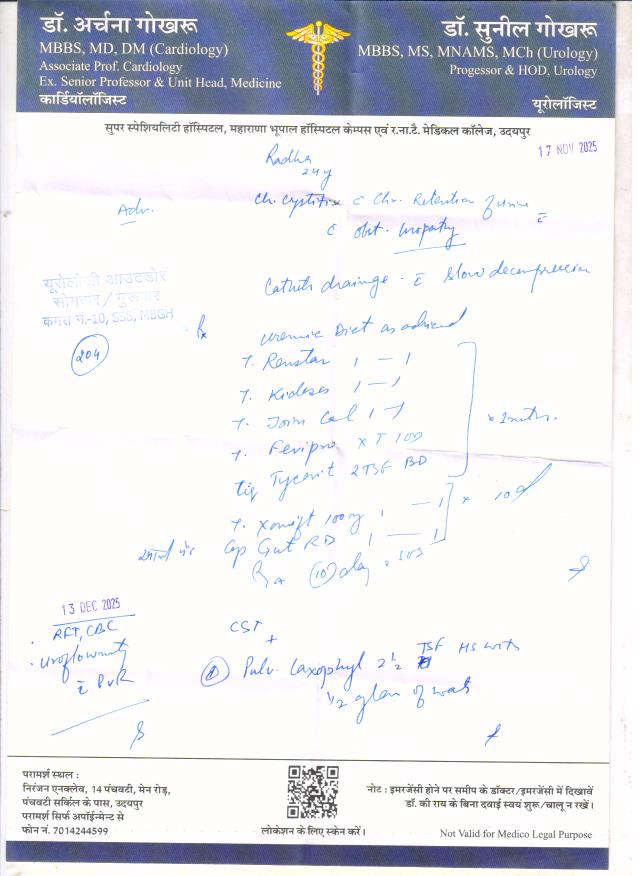 डॉ. अर्चना गोखरू
MBBS, MD, DM (Cardiology)
Associate Prof. Cardiology
Ex. Senior Professor & Unit Head, Medicine
कार्डियॉलॉजिस्ट
डॉ. सुनील गोखरू
MBBS, MS, MNAMS, MCh (Urology)
Progessor & HOD, Urology
यूरोलॉजिस्ट
सुपर स्पेशियलिटी हॉस्पिटल, महाराणा भूपाल हॉस्पिटल केम्पस एवं र.ना.टै. मेडिकल कॉलेज, उदयपुर
17 NOV 2025
Radha
24y
Adv.
Ch. cystitis c̄ Chr. Retention of urine c̄
c̄ obt. uropathy
Cathe drainage c̄ slow decompression
यूरोलोजी आउटडोर
सोमवार/गुरूवार
कमरा नं.-10, SSB, MBGH
204
Rx
uremic Diet as advised
T. Renstar 1 — 1
T. 1 — 1
T. Cal 1 - 1
T. x T 10D
2 TSF BD
T. 100mg 1 — 1 x 10d
Cap Gut RD 1 — 1
(10) day
13 DEC 2025
RFT, CBC
Uroflowmetry
c̄ PVR
CST
+
Pulv. Laxophyl 2 ½ TSF HS with
½ glass of water
परामर्श स्थल :
निरंजन एनक्लेव, 14 पंचवटी, मेन रोड़,
पंचवटी सर्किल के पास, उदयपुर
परामर्श सिर्फ अपॉईन्मेन्ट से
फोन नं. 7014244599
लोकेशन के लिए स्केन करें।
नोट : इमरजेंसी होने पर समीप के डॉक्टर/इमरजेंसी में दिखावें
डॉ. की राय के बिना दवाई स्वयं शुरू/चालू न रखें।
Not Valid for Medico Legal Purpose